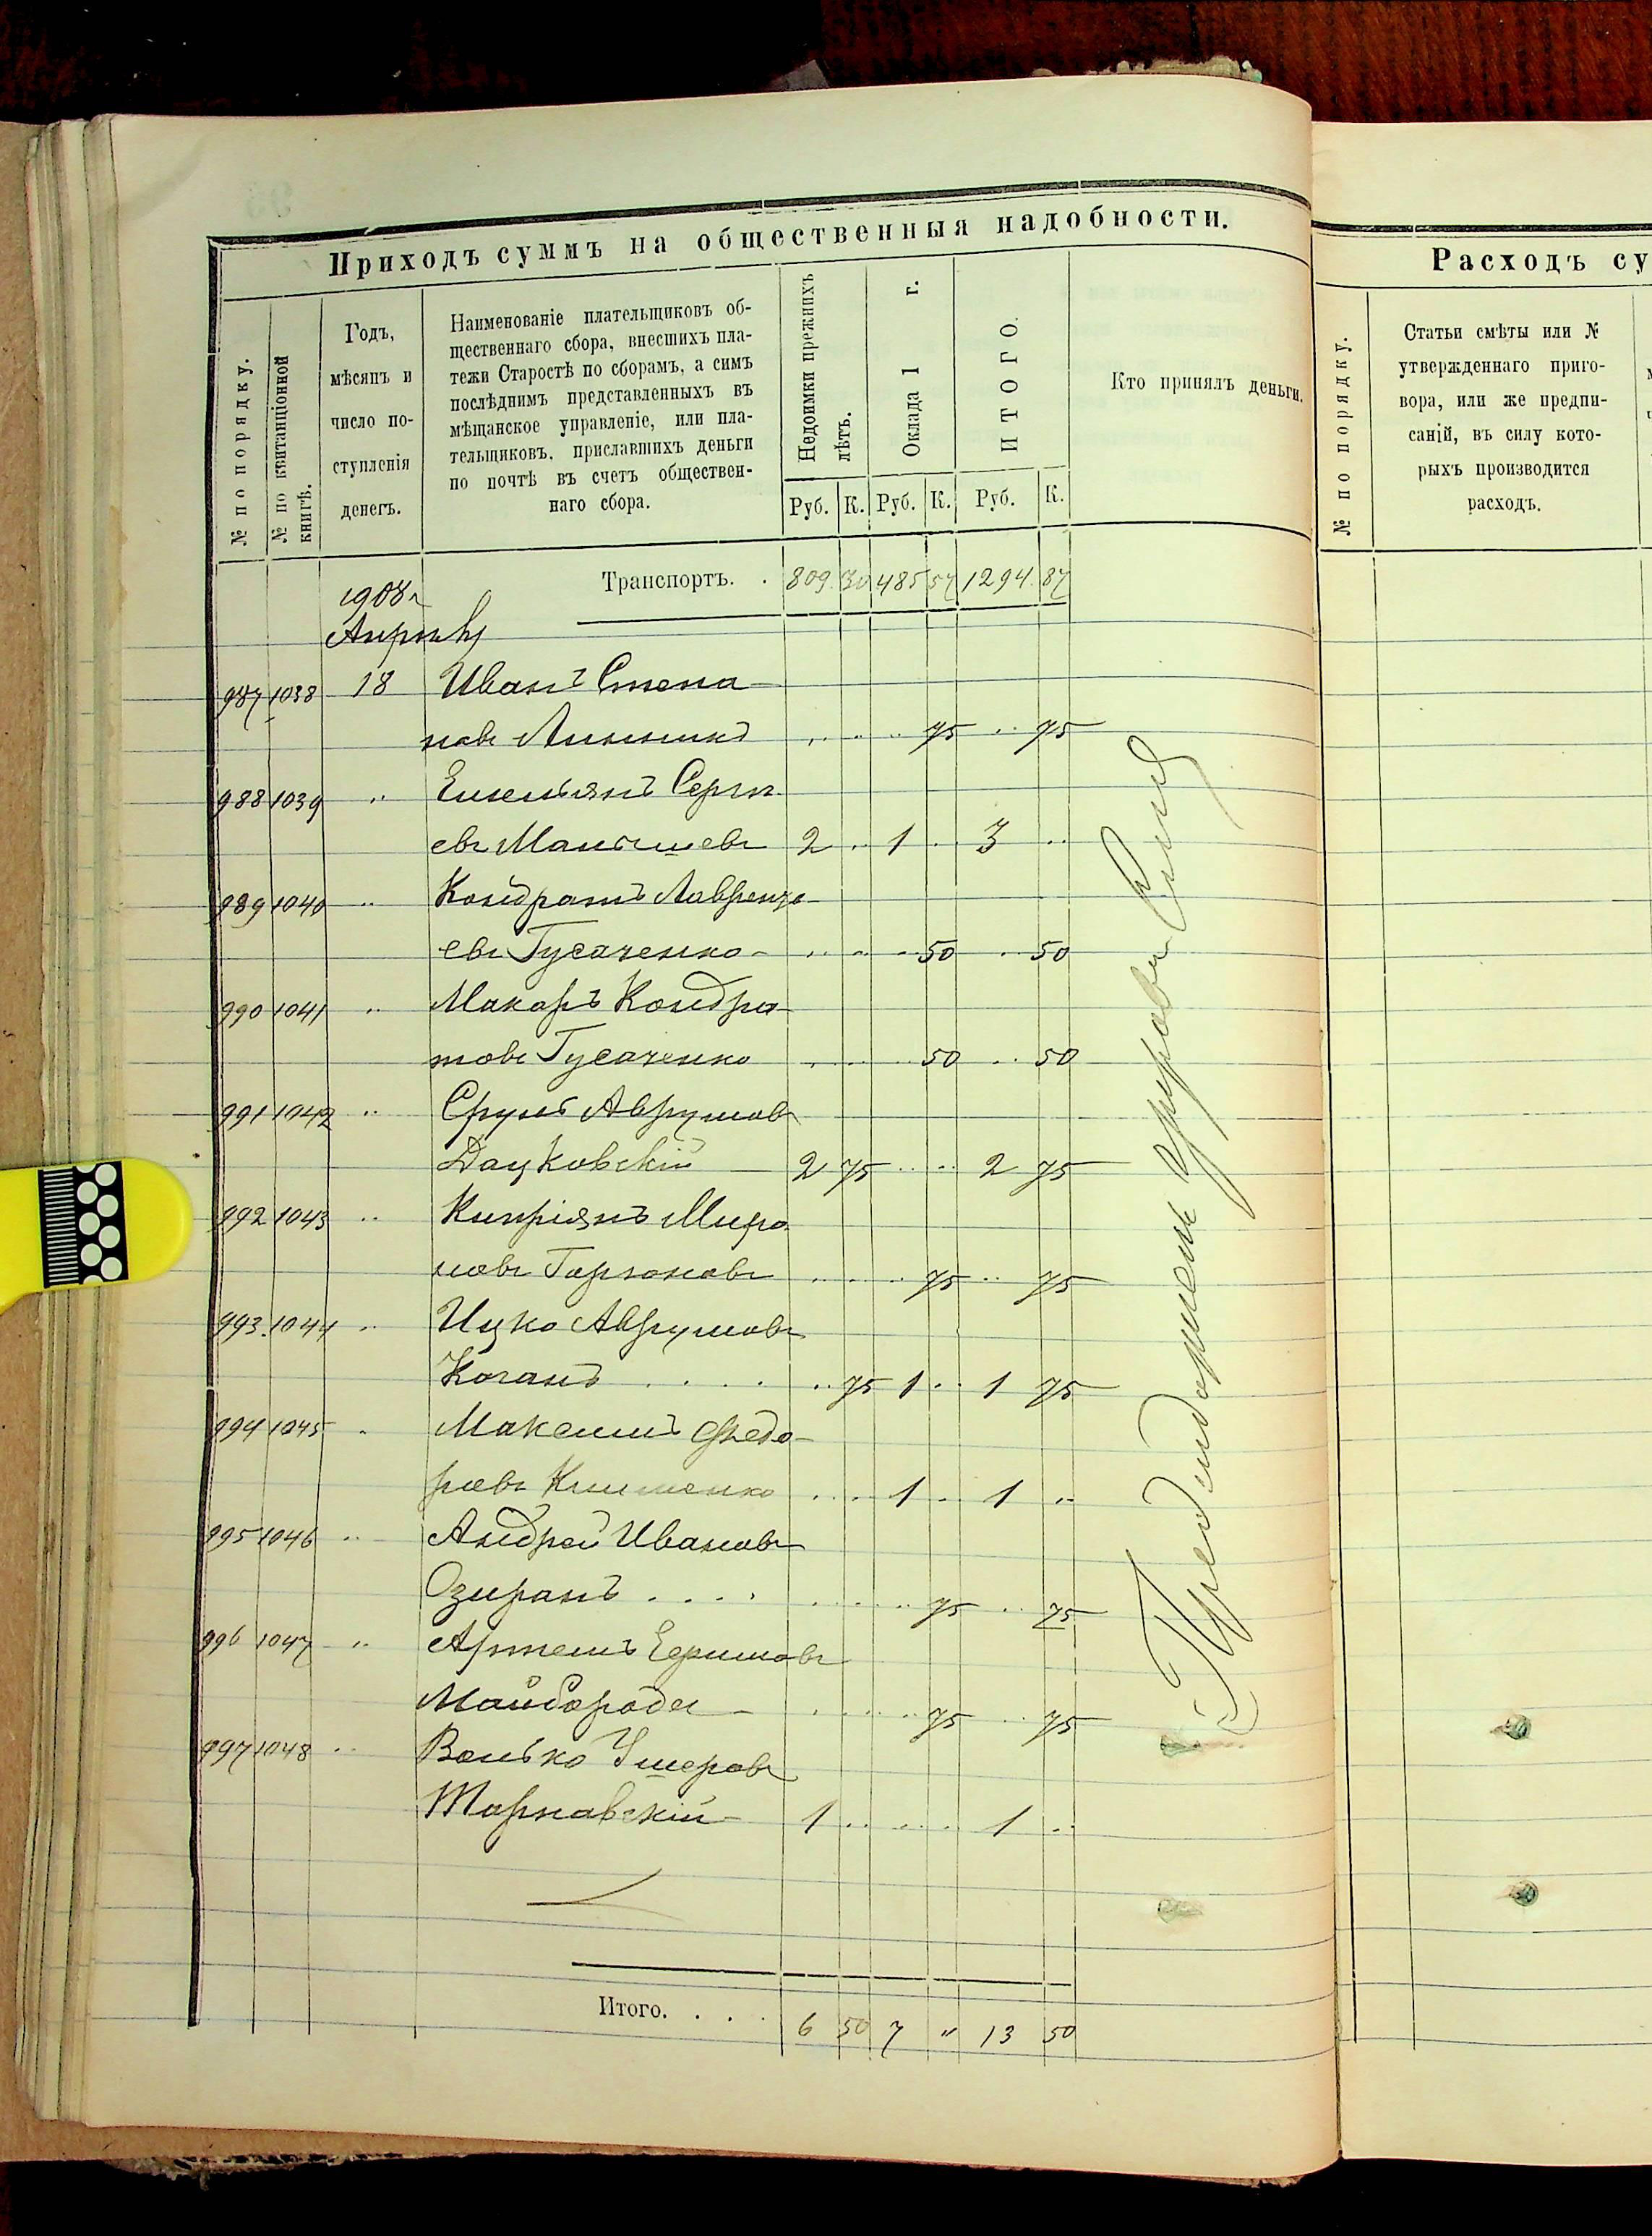 Приходъ суммъ на общественныя надобности.
№ по порядку.
№ по квитанціонной
книгѣ.
Годъ,
мѣсяцъ и
число по-
ступленія
денегъ.
Наименованіе плательщиковъ об-
щественнаго сбора, внесшихъ пла-
тежи Старостѣ по сборамъ, а симъ
послѣднимъ представленныхъ въ
мѣщанское управленіе, или пла-
тельщиковъ, приславшихъ деньги
по почтѣ въ счетъ обществен-
наго сбора.
Недоимки прежнихъ
лѣтъ.
Оклада 1 г.
ИТОГО.
Кто принялъ деньги.
Руб. К. Руб. К. Руб. К.
Транспортъ. . 809. 30 485 57 1294. 87
1908 г
Апрѣль
987 1038 18 Иванъ Степа
новъ 75 75
988 1039 " Емельянъ Сергѣ
евъ Малышевъ 2 .. 1 .. 3 ..
989 1040 " Кондратъ Лаврентье-
евъ Гусаченко - 50 50
990 1041 " Макаръ Кондра-
товъ Гусаченко 50 50
991 1042 " Срулъ Аврумовъ
Дацковскій — 2 75 .. .. 2 75
992 1043 " Кипріянъ Миро
новъ Горгоновъ 75 75
993. 1044 " Ицко Аврумовъ
Коганъ . . . . .. 75 1 .. 1 75
994 1045 " Максимъ Федо-
ровъ Клименко 1 .. 1 ..
995 1046 " Андрей Ивановъ
Озиранъ . . . . 75 75
996 1047 " Артемъ Ефимовъ
Майборода - 75 75
997 1048 " Волько Ушеровъ
Тарнавскій - 1 .. .. .. 1 ..
Итого. . . . 6 50 7 " 13 50
Расходъ су
№ по порядку.
Статьи смѣты или №
утвержденнаго приго-
вора, или же предпи-
саній, въ силу кото-
рыхъ производится
расходъ.